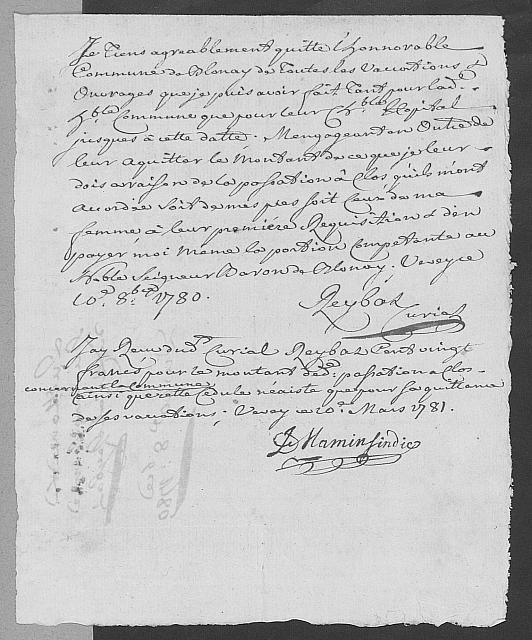 Je Tiens agreablement quitte l'honnorable
Commune de Blonay de Toutes les Vaccations &
Ouvrages que je puis avoir fait Tant pour lad.e
h.ble Commune que pour leur h.ble Hopital
jusques à cette datte. M'engageant en Outre de
leur aquitter le Montant de ce que je leur
dois a raison de la passation à Clos qu'ils m'ont
accordée soit de mes pes soit Ceux de ma
femme à leur premiére Requisition & d'en
payer moi Meme la portion Competente au
Noble Seigneur Baron de Blonay. Vevey ce
10.e 8.bre 1780.
Reybaz
Curial
J'ay Reçu dud.t Curial Reybaz Cent vingt
francs pour le montant de d.e passation a Clos
concernant la Commune
ainsi que cette Cedule n'éxiste que pour sa quittance
de ses vaccations. Vevey ce 10.e Mars 1781.
Mamin Sindic